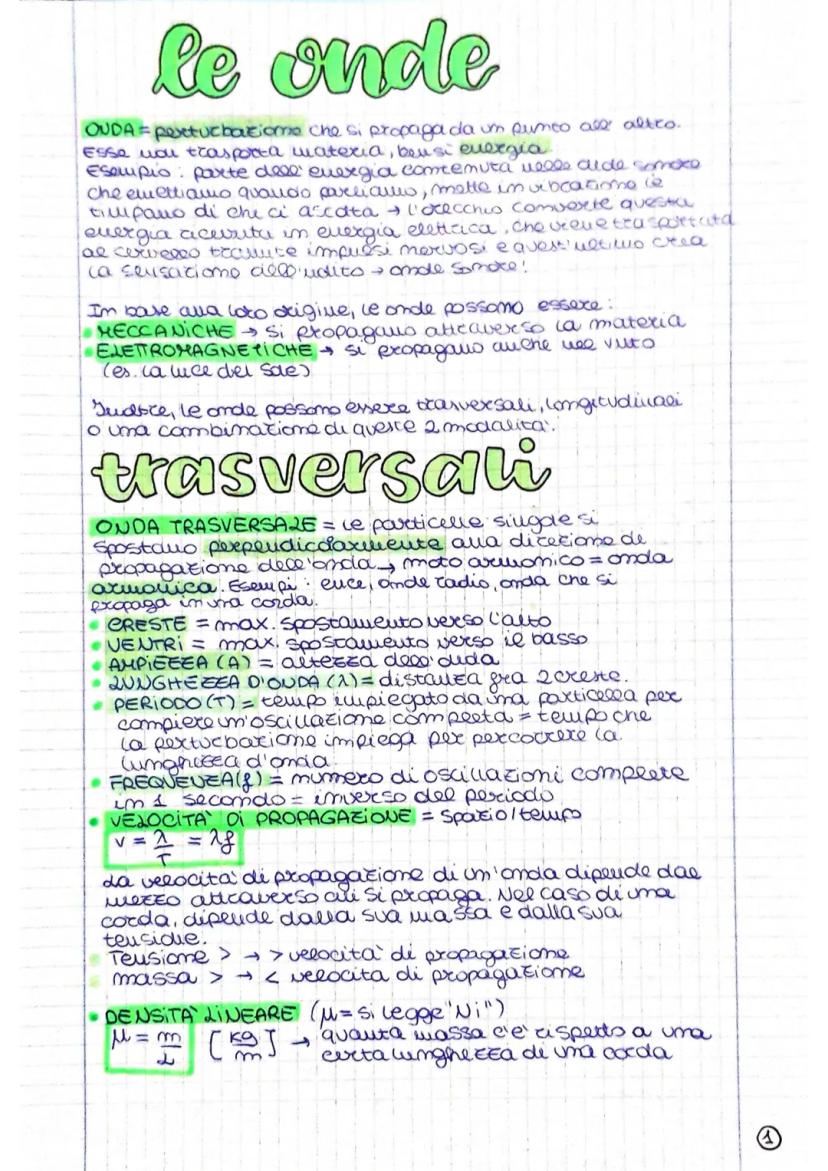 le onde
ONDA = perturbazione che si propaga da un punto all'altro.
Esse non trasporta materia, bensì energia.
Esempio: parte dell'energia contenuta nelle onde sonore
che emettiamo quando parliamo, mette in vibrazione il
timpano di chi ci ascolta → l'orecchio converte questa
energia ricevuta in energia elettrica, che viene trasportata
al cervello tramite impulsi nervosi e quest'ultimo crea
la sensazione dell'udito → onde sonore!
In base alla loro origine, le onde possono essere:
• MECCANICHE → si propagano attraverso la materia
• ELETTROMAGNETICHE → si propagano anche nel vuoto
(es. la luce del sole)
Inoltre, le onde possono essere trasversali, longitudinali
o una combinazione di queste 2 modalità.
trasversali
ONDA TRASVERSALE = le particelle singole si
spostano perpendicolarmente alla direzione di
propagazione dell'onda → moto armonico = onda
armonica. Esempi: luce, onde radio, onda che si
propaga in una corda.
• CRESTE = max. spostamento verso l'alto
• VENTRI = max. spostamento verso il basso
• AMPIEZZA (A) = altezza dell'onda
• LUNGHEZZA D'ONDA (λ) = distanza fra 2 creste.
• PERIODO (T) = tempo impiegato da una particella per
compiere un'oscillazione completa = tempo che
la perturbazione impiega per percorrere la
lunghezza d'onda.
• FREQUENZA (f) = numero di oscillazioni complete
in 1 secondo = inverso del periodo
• VELOCITA' DI PROPAGAZIONE = spazio/tempo
v = λ/T = λf
La velocità di propagazione di un'onda dipende dal
mezzo attraverso cui si propaga. Nel caso di una
corda, dipende dalla sua massa e dalla sua
tensione.
• Tensione > → > velocità di propagazione
• massa > → < velocità di propagazione
• DENSITA' LINEARE (μ = si legge "Ni")
μ = m/L [kg/m] → quanta massa c'è rispetto a una
certa lunghezza di una corda
1